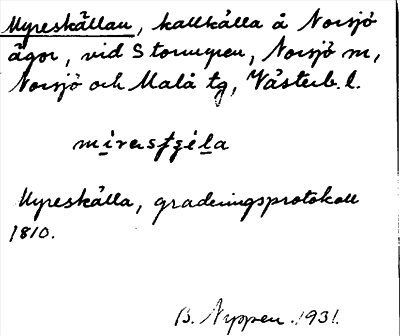 Myreskällan, kallkälla å Norsjö
ägor, vid Stormyren, Norsjö m,
Norsjö och Malå tg, Västerb. l.
Myreskälla, graderingsprotokoll
1810.
B. Nyppen. 1931.